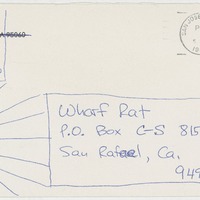 A 95060
SAN JOSE
P
Wharf Rat
P.O. Box C-S 815
San Rafael, Ca.
949